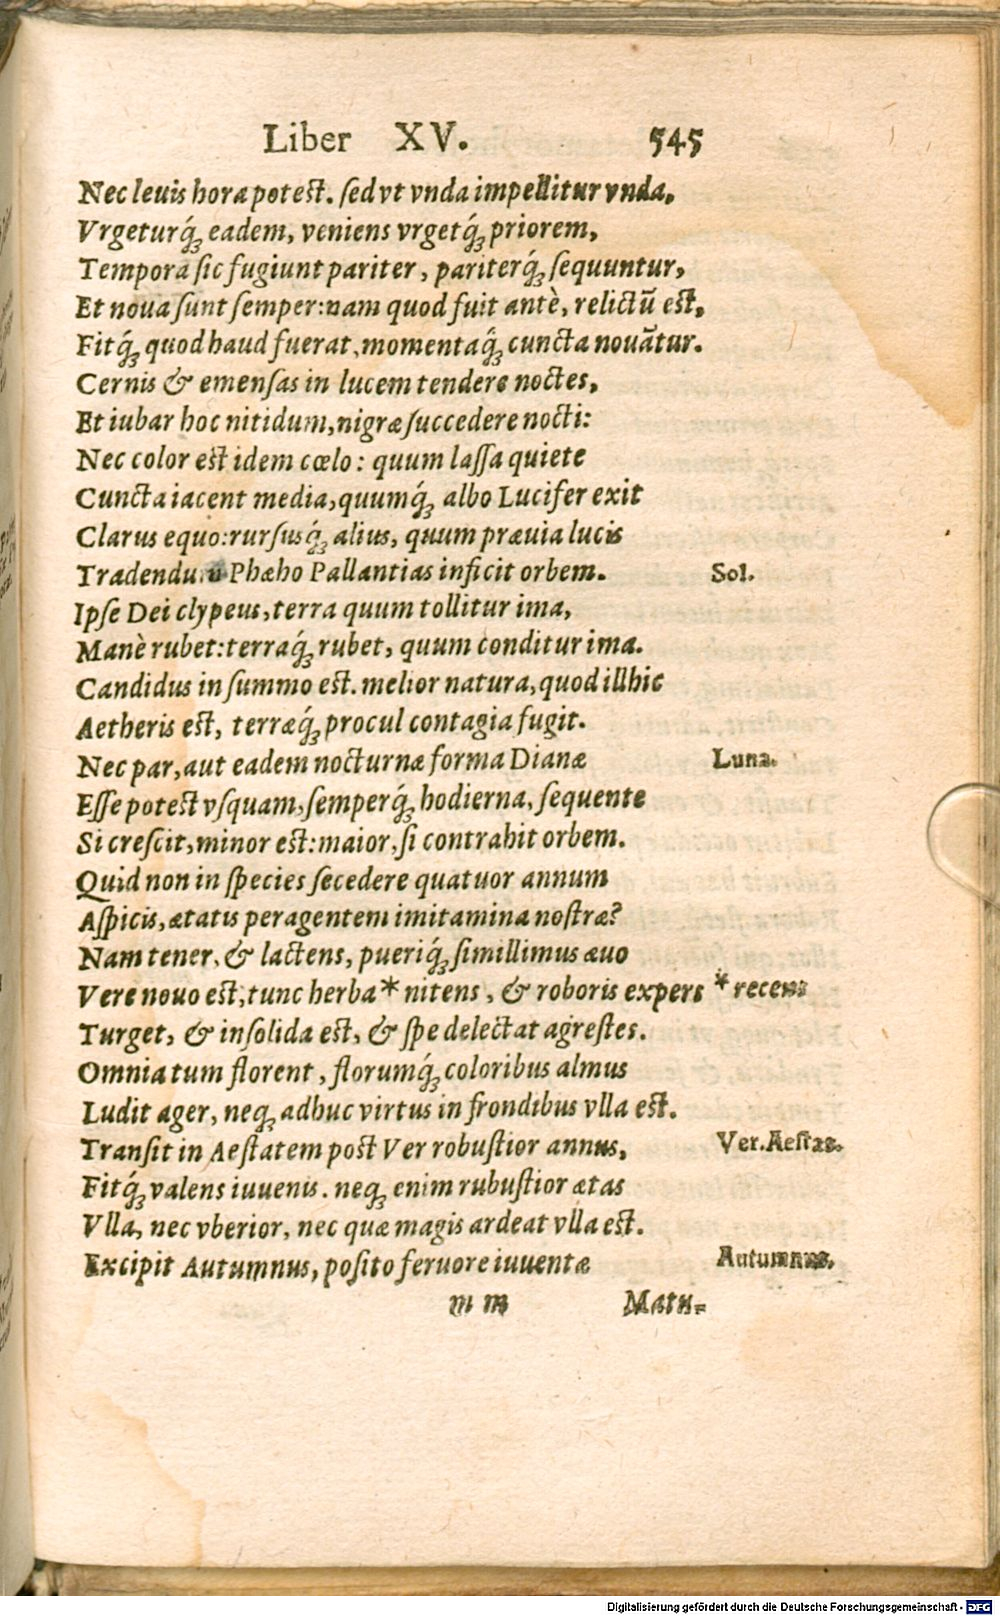 Liber XV. 545
Nec leuis hora potest. sed vt vnda impellitur vnda,
Vrgeturq́ꝫ eadem, veniens vrgetq́ꝫ priorem,
Tempora sic fugiunt pariter, pariterq́ꝫ sequuntur,
Et noua sunt semper: nam quod fuit antè, relictũ est,
Fitq́ꝫ quod haud fuerat, momentaq́ꝫ cuncta nouãtur.
Cernis & emensas in lucem tendere noctes,
Et iubar hoc nitidum, nigræ succedere nocti:
Nec color est idem cœlo: quum lassa quiete
Cuncta iacent media, quumq́ꝫ albo Lucifer exit
Clarus equo: rursusq́ꝫ alius, quum præuia lucis
Tradendum Phæho Pallantias inficit orbem. Sol.
Ipse Dei clypeus, terra quum tollitur ima,
Manè rubet: terraq́ꝫ rubet, quum conditur ima.
Candidus in summo est. melior natura, quod illhic
Aetheris est, terræq́ꝫ procul contagia fugit.
Nec par, aut eadem nocturnæ forma Dianæ Luna.
Esse potest vsquam, semperq́ꝫ hodierna, sequente
Si crescit, minor est: maior, si contrahit orbem.
Quid non in species secedere quatuor annum
Aspicis, ætatis peragentem imitamina nostræ?
Nam tener, & lactens, pueriq́ꝫ simillimus æuo
Vere nouo est, tunc herba* nitens, & roboris expers * recens
Turget, & insolida est, & spe delectat agrestes.
Omnia tum florent, florumq́ꝫ coloribus almus
Ludit ager, neqꝫ adhuc virtus in frondibus vlla est.
Transit in Aestatem post Ver robustior annus, Ver. Aestas.
Fitq́ꝫ valens iuuenis. neqꝫ enim rubustior ætas
Vlla, nec vberior, nec quæ magis ardeat vlla est.
Excipit Autumnus, posito feruore iuuentæ Autumnus.
m m Matu-
Digitalisierung gefördert durch die Deutsche Forschungsgemeinschaft - DFG